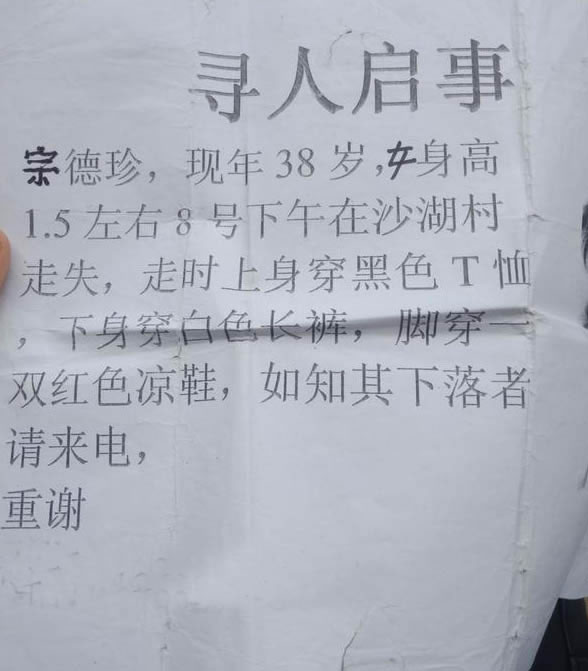 寻人启事
宗德珍，现年 38 岁,女身高
1.5 左右 8 号下午在沙湖村
走失，走时上身穿黑色 T 恤
，下身穿白色长裤，脚穿一
双红色凉鞋，如知其下落者
请来电，
重谢